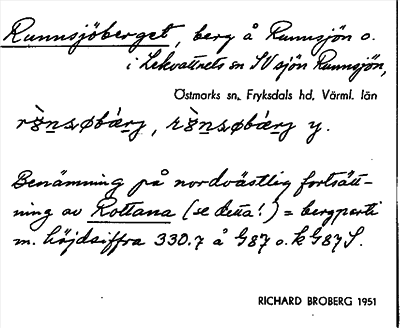 Runnsjöberget, berg å Runnsjön o.
i Lekvattnets sn SV sjön Runnsjön,
Östmarks sn, Fryksdals hd, Värml. län
y.
Benämning på nordvästlig fortsätt-
ning av Rottana (se detta!) = bergparti
m. höjdsiffra 330.7 å G87 o. k G87 S.
RICHARD BROBERG 1951